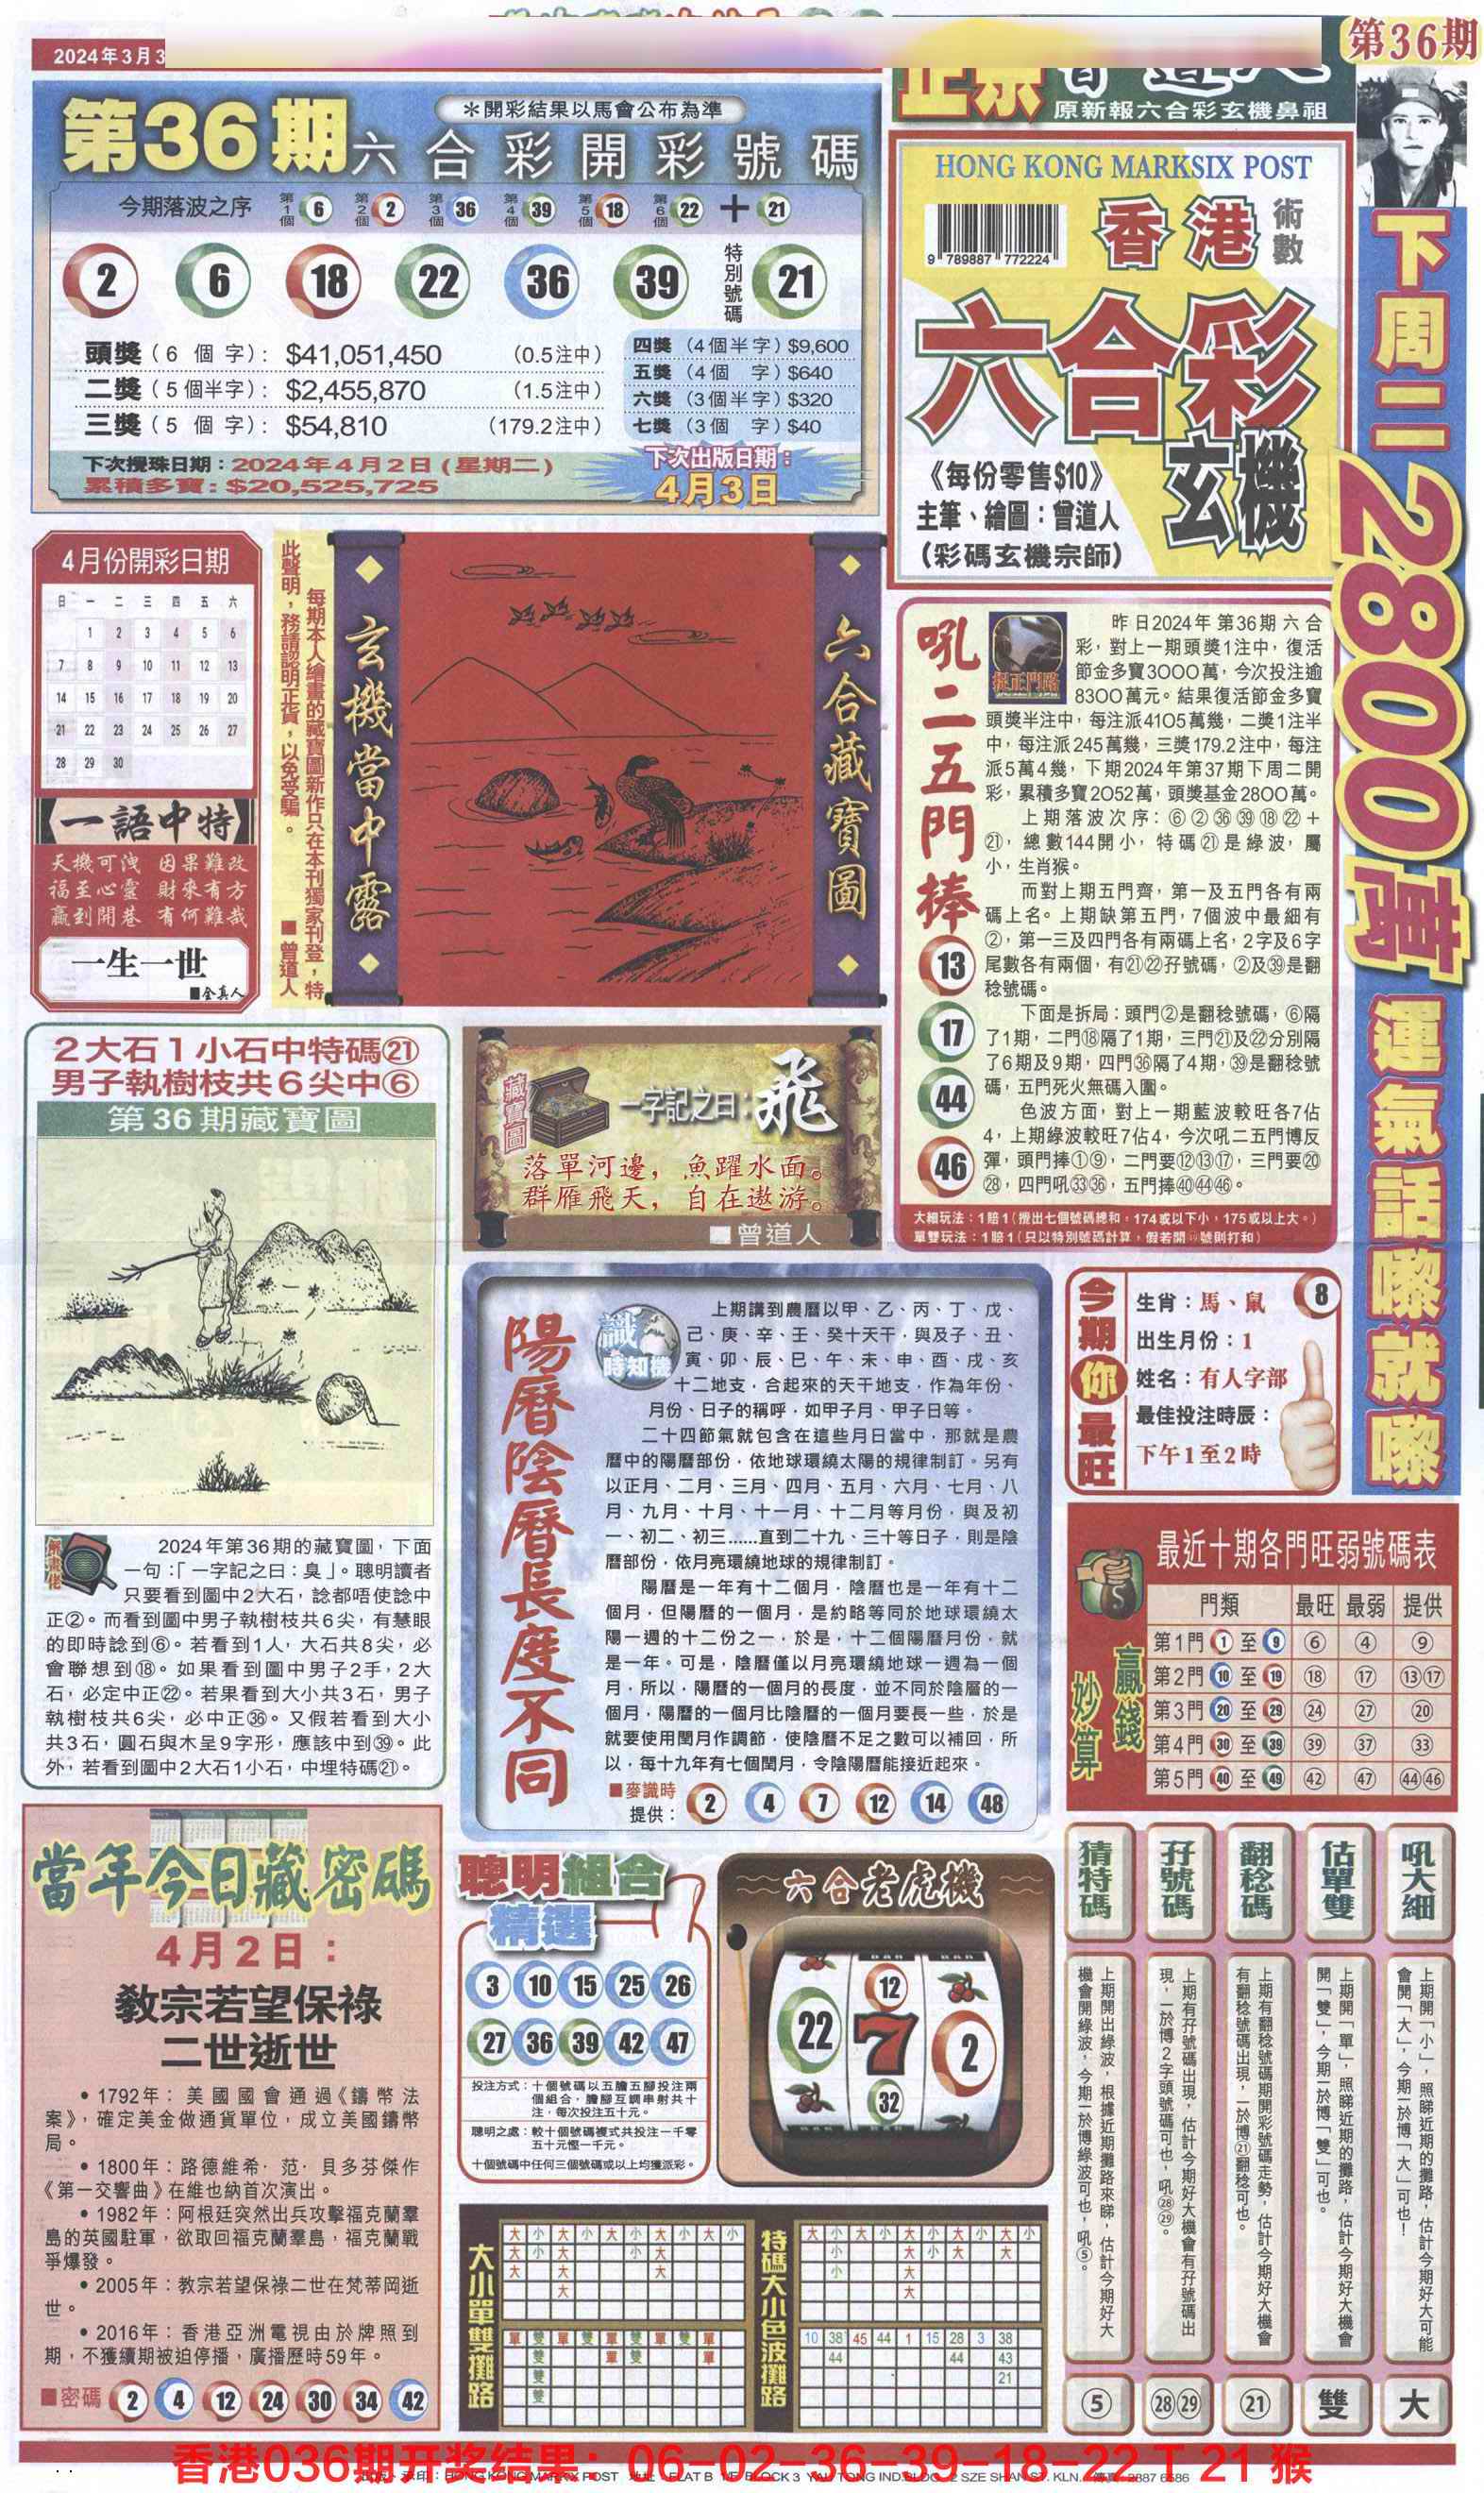 2024年3月3
第36期
原新報六合彩玄機鼻祖
第36期
六合彩開彩號碼
＊開彩結果以馬會公布為準
今期落波之序 第1個 6 第2個 2 第3個 36 第4個 39 第5個 18 第6個 22 ＋ 21
2 6 18 22 36 39 特別號碼 21
頭獎（6 個 字）: $41,051,450 （0.5注中）
二獎（5個半字）: $2,455,870 （1.5注中）
三獎（5 個 字）: $54,810 （179.2注中）
四獎（4個半字）$9,600
五獎（4個 字）$640
六獎（3個半字）$320
七獎（3個 字）$40
下次攪珠日期：2024年4月2日（星期二）
累積多寶：$20,525,725
下次出版日期：
4月3日
HONG KONG MARKSIX POST
9 789887 772224
香港
術數
六合彩
玄機
《每份零售$10》
主筆、繪圖：曾道人
（彩碼玄機宗師）
下周二2800萬運氣話嚟就嚟
4月份開彩日期
日 一 二 三 四 五 六
1 2 3 4 5 6
7 8 9 10 11 12 13
14 15 16 17 18 19 20
21 22 23 24 25 26 27
28 29 30
【一語中特】
天機可洩 因果難改
福至心靈 財來有方
贏到開巷 有何難哉
一生一世
■全真人
每期本人繪畫的藏寶圖新作只在本刊獨家刊登，特
此聲明，務請認明正貨，以免受騙。 ■曾道人
玄機當中露
六合藏寶圖
吼二五門捧
13
17
44
46
捉正門路
昨日2024年第36期六合
彩，對上一期頭獎1注中，復活
節金多寶3000萬，今次投注逾
8300萬元。結果復活節金多寶
頭獎半注中，每注派4105萬幾，二獎1注半
中，每注派245萬幾，三獎179.2注中，每注
派5萬4幾，下期2024年第37期下周二開
彩，累積多寶2052萬，頭獎基金2800萬。
上期落波次序：⑥②㊱㊴⑱㉒＋
㉑，總數144開小，特碼㉑是綠波，屬
小，生肖猴。
而對上期五門齊，第一及五門各有兩
碼上名。上期缺第五門，7個波中最細有
②，第一三及四門各有兩碼上名，2字及6字
尾數各有兩個，有㉑㉒孖號碼，②及㊴是翻
稔號碼。
下面是拆局：頭門②是翻稔號碼，⑥隔
了1期，二門⑱隔了1期，三門㉑及㉒分別隔
了6期及9期，四門㊱隔了4期，㊴是翻稔號
碼，五門死火無碼入圍。
色波方面，對上一期藍波較旺各7佔
4，上期綠波較旺7佔4，今次吼二五門博反
彈，頭門捧①⑨，二門要⑫⑬⑰，三門要⑳
㉘，四門吼㉝㊱，五門捧㊵㊹㊻。
大細玩法：1賠1（攪出七個號碼總和，174或以下小，175或以上大。）
單雙玩法：1賠1（只以特別號碼計算，假若開 號則打和）
2大石1小石中特碼㉑
男子執樹枝共6尖中⑥
第36期藏寶圖
解畫佬
2024年第36期的藏寶圖，下面
一句：「一字記之曰：臭」。聰明讀者
只要看到圖中2大石，諗都唔使諗中
正②。而看到圖中男子執樹枝共6尖，有慧眼
的即時諗到⑥。若看到1人，大石共8尖，必
會聯想到⑱。如果看到圖中男子2手，2大
石，必定中正㉒。若果看到大小共3石，男子
執樹枝共6尖，必中正㊱。又假若看到大小
共3石，圓石與木呈9字形，應該中到㊴。此
外，若看到圖中2大石1小石，中埋特碼㉑。
藏寶圖
一字記之曰：飛
落單河邊，魚躍水面。
群雁飛天，自在遨游。
■曾道人
陽曆陰曆長度不同
識時知機
上期講到農曆以甲、乙、丙、丁、戊、
己、庚、辛、壬、癸十天干，與及子、丑、
寅、卯、辰、巳、午、未、申、酉、戌、亥
十二地支，合起來的天干地支，作為年份、
月份、日子的稱呼，如甲子月、甲子日等。
二十四節氣就包含在這些月日當中，那就是農
曆中的陽曆部份，依地球環繞太陽的規律制訂。另有
以正月、二月、三月、四月、五月、六月、七月、八
月、九月、十月、十一月、十二月等月份，與及初
一、初二、初三……直到二十九、三十等日子，則是陰
曆部份，依月亮環繞地球的規律制訂。
陽曆是一年有十二個月，陰曆也是一年有十二
個月，但陽曆的一個月，是約略等同於地球環繞太
陽一週的十二份之一，於是，十二個陽曆月份，就
是一年。可是，陰曆僅以月亮環繞地球一週為一個
月，所以，陽曆的一個月的長度，並不同於陰層的一
個月，陽曆的一個月比陰曆的一個月要長一些，於是
就要使用閏月作調節，使陰曆不足之數可以補回，所
以，每十九年有七個閏月，令陰陽曆能接近起來。
■麥識時
提供： 2 4 7 12 14 48
今期你最旺
生肖：馬、鼠 8
出生月份：1
姓名：有人字部
最佳投注時辰：
下午1至2時
最近十期各門旺弱號碼表
贏錢妙算
門類 最旺 最弱 提供
第1門 1 至 9 ⑥ ④ ⑨
第2門 10 至 19 ⑱ ⑰ ⑬⑰
第3門 20 至 29 ㉔ ㉗ ⑳
第4門 30 至 39 ㊴ ㊲ ㉝
第5門 40 至 49 ㊷ ㊼ ㊹㊻
當年今日藏密碼
4月2日：
教宗若望保祿
二世逝世
• 1792年：美國國會通過《鑄幣法
案》，確定美金做通貨單位，成立美國鑄幣
局。
• 1800年：路德維希·范·貝多芬傑作
《第一交響曲》在維也納首次演出。
• 1982年：阿根廷突然出兵攻擊福克蘭羣
島的英國駐軍，欲取回福克蘭羣島，福克蘭戰
爭爆發。
• 2005年：教宗若望保祿二世在梵蒂岡逝
世。
• 2016年：香港亞洲電視由於牌照到
期，不獲續期被迫停播，廣播歷時59年。
■密碼 2 4 12 24 30 34 42
聰明組合
精選
3 10 15 25 26
27 36 39 42 47
投注方式：十個號碼以五膽五腳投注兩
個組合，膽腳互調串射共十
注，每次投注五十元。
聰明之處：較十個號碼複式共投注一千零
五十元慳一千元。
十個號碼中任何三個號碼或以上均獲派彩。
六合老虎機
22 12 7 32 2
大小單雙攤路
大 小 大 小 大 小 大 小 大 小
大 小 大 小 大
大 大 大
大
單 雙 單 雙 單 雙 單 雙 單
雙 單 雙 單
雙
雙
特碼大小色波攤路
大 小 大 小 大 小 大 小 大 小
小 大 小 大 大
小 大
大
10 38 45 44 1 15 28 3 38
44 44 43
21
猜特碼
上期開出綠波，根據近期攤路來睇，估計今期好大
機會開綠波，今期一於博綠波可也，吼⑤。
⑤
孖號碼
上期有孖號碼出現，估計今期好大機會有孖號碼出
現，一於博2字頭號碼可也，吼㉘㉙。
㉘㉙
翻稔碼
上期有翻稔號碼期開彩號碼走勢，估計今期好大機會
有翻稔號碼出現，一於博㉑翻稔可也。
㉑
估單雙
上期開「單」，照睇近期的攤路，估計今期好大機會
開「雙」，今期一於博「雙」可也。
雙
吼大細
上期開「小」，照睇近期的攤路，估計今期好大可能
會開「大」，今期一於博「大」可也！
大
香港036期开奖结果：06-02-36-39-18-22 T 21 猴